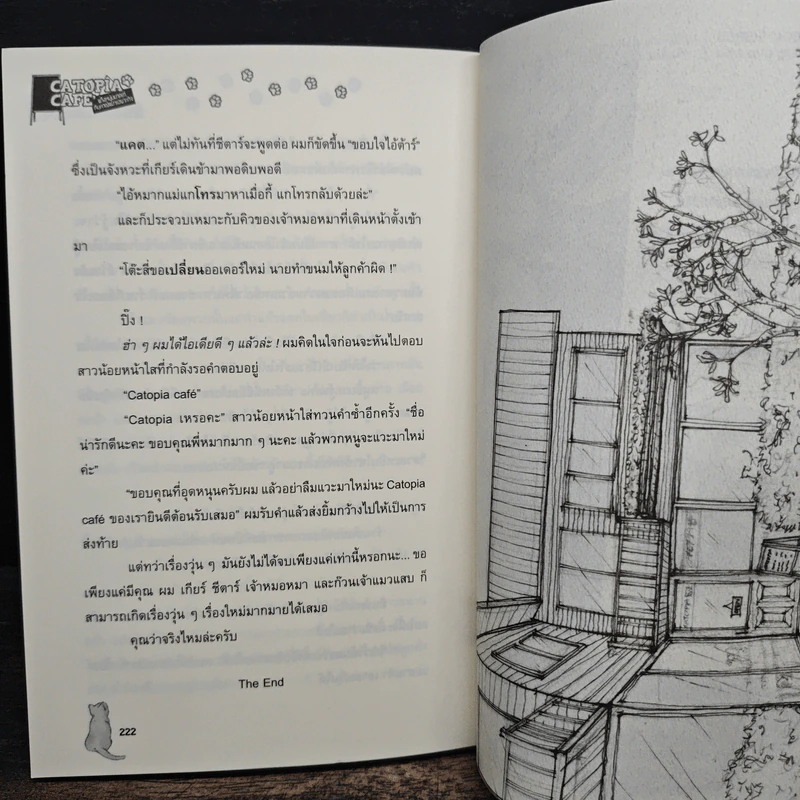 CATOPIA
CAFE
"แคต..." แต่ไม่ทันที่ซีตาร์จะพูดต่อ ผมก็ขัดขึ้น "ขอบใจไอ้ต้าร์"
ซึ่งเป็นจังหวะที่เกียร์เดินเข้ามาพอดิบพอดี
"ไอ้หมากแม่แกโทรมาหาเมื่อกี้ แกโทรกลับด้วยล่ะ"
และก็ประจวบเหมาะกับคิวของเจ้าหมอหมาที่เดินหน้าตั้งเข้า
มา
"โต๊ะสี่ขอเปลี่ยนออเดอร์ใหม่ นายทำขนมให้ลูกค้าผิด !"
ปิ๊ง !
ฮ่า ๆ ผมได้ไอเดียดี ๆ แล้วล่ะ ! ผมคิดในใจก่อนจะหันไปตอบ
สาวน้อยหน้าใสที่กำลังรอคำตอบอยู่
"Catopia café"
"Catopia เหรอคะ" สาวน้อยหน้าใส่ทวนคำซ้ำอีกครั้ง "ชื่อ
น่ารักดีนะคะ ขอบคุณพี่หมากมาก ๆ นะคะ แล้วพวกหนูจะแวะมาใหม่
ค่ะ"
"ขอบคุณที่อุดหนุนครับผม แล้วอย่าลืมแวะมาใหม่นะ Catopia
café ของเรายินดีต้อนรับเสมอ" ผมรับคำแล้วส่งยิ้มกว้างไปให้เป็นการ
ส่งท้าย
แต่ทว่าเรื่องวุ่น ๆ มันยังไม่ได้จบเพียงแค่เท่านี้หรอกนะ... ขอ
เพียงแค่มีคุณ ผม เกียร์ ซีตาร์ เจ้าหมอหมา และก๊วนเจ้าแมวแสบ ก็
สามารถเกิดเรื่องวุ่น ๆ เรื่องใหม่มากมายได้เสมอ
คุณว่าจริงไหมล่ะครับ
The End
222